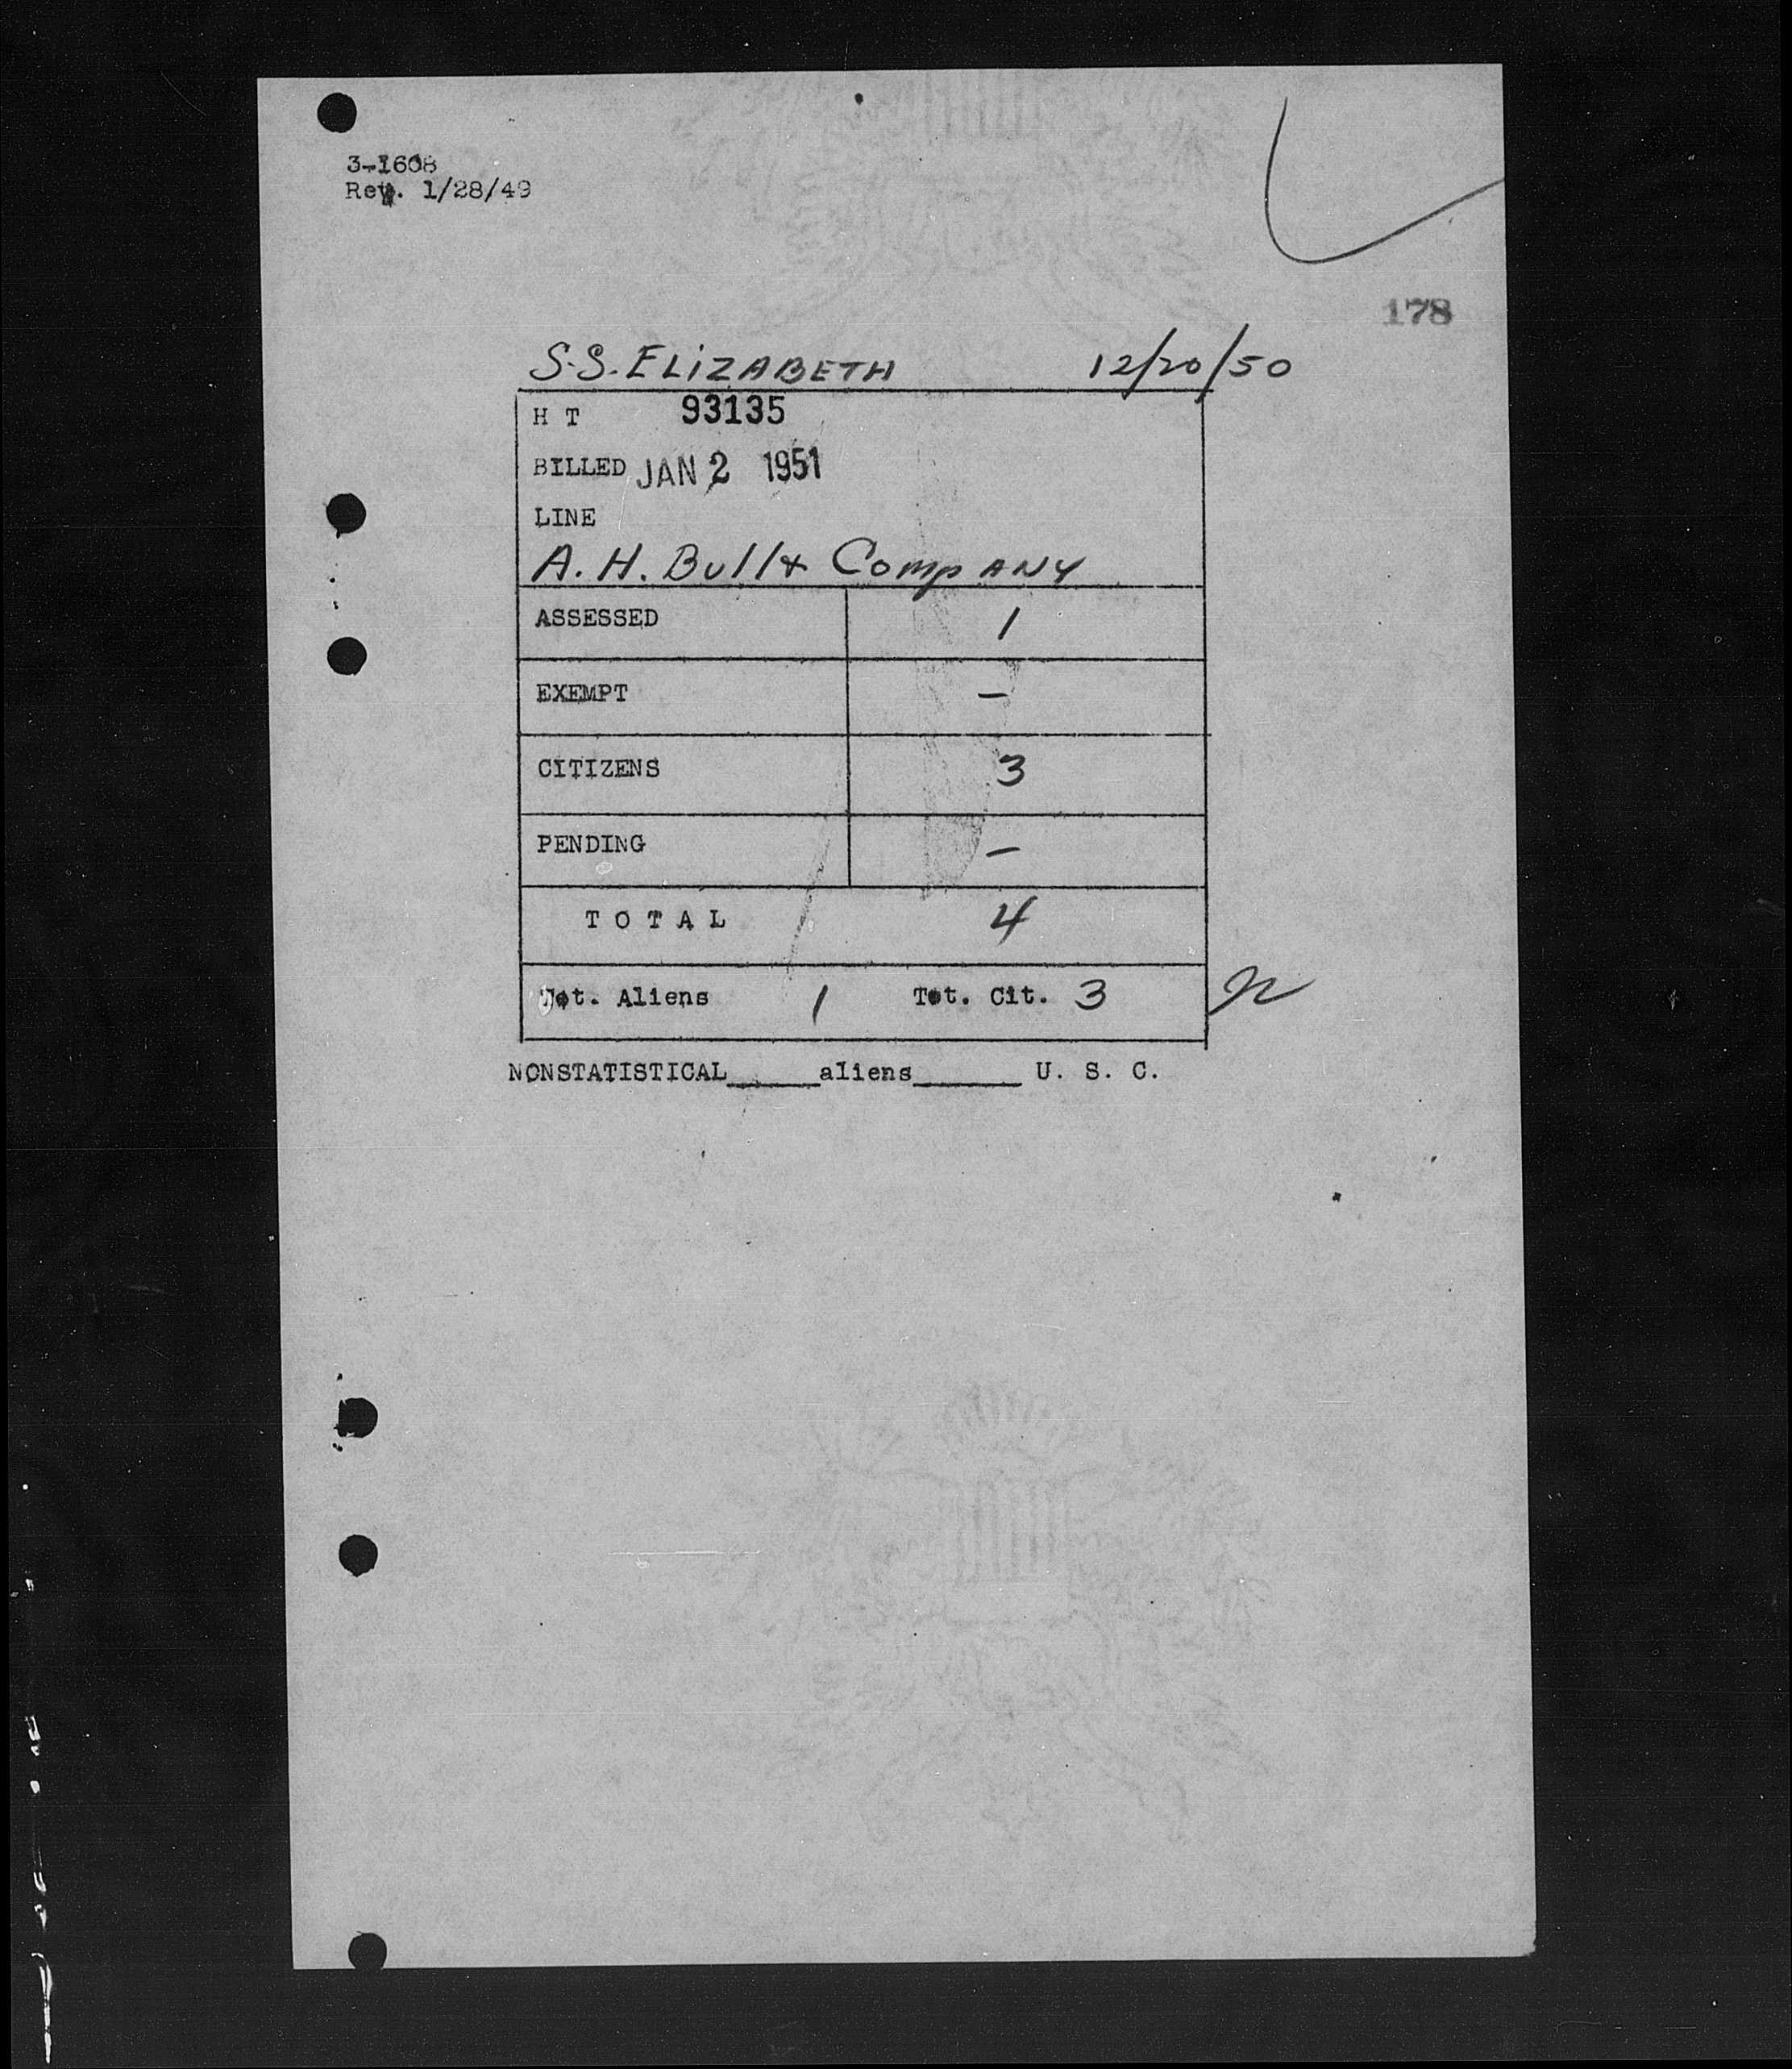 3-1608
Rev. 1/28/49
178
S.S. ELIZABETH 12/20/50
H T 93135
BILLED JAN 2 1951
LINE
A. H. Bull & Company
ASSESSED 1
EXEMPT –
CITIZENS 3
PENDING –
T O T A L 4
Tot. Aliens 1 Tot. Cit. 3
NONSTATISTICAL_____aliens______ U. S. C.